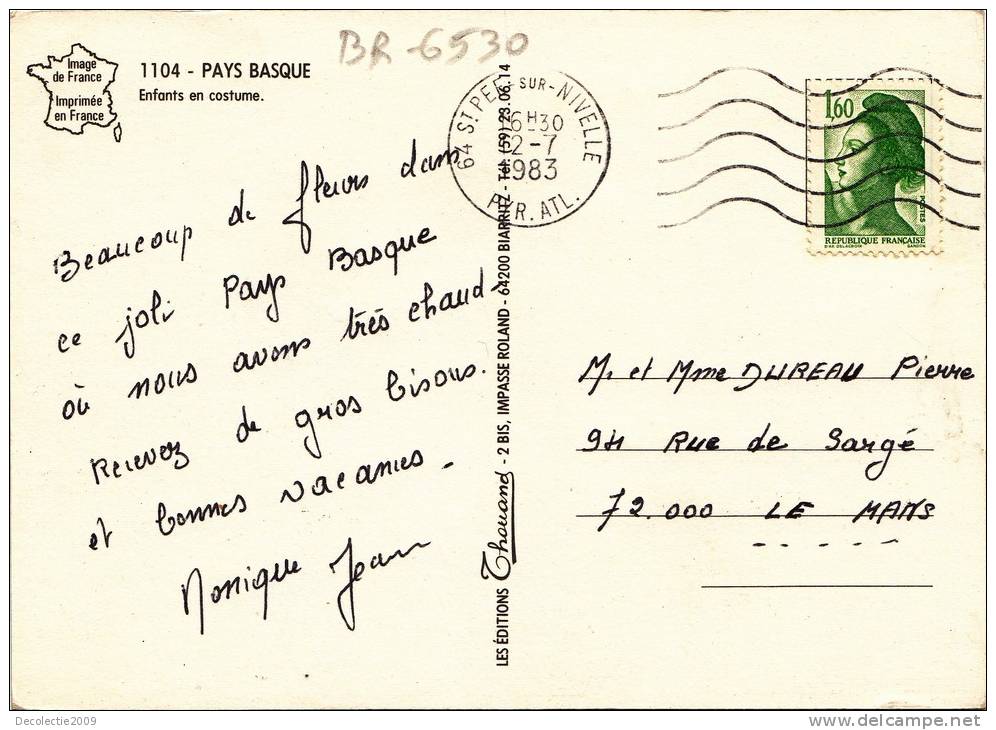 BR-6530
Image
de France
Imprimée
en France
1104 - PAYS BASQUE
Enfants en costume.
Beaucoup de fleurs dans
ce joli Pays Basque
où nous avons très chaud -
Recevez de gros bisous.
et bonnes vacances -
Monique Jean
LES ÉDITIONS Thouand - 2 BIS, IMPASSE ROLAND - 64200 BIARRITZ - Tél. (59) 23.06.14
64 ST PEE-SUR-NIVELLE
16H30
12-7
1983
PYR. ATL.
1,60
POSTES
REPUBLIQUE FRANÇAISE
D'AP. DELACROIX GANDON
M. et Mme DUREAU Pierre
94 Rue de Sargé
72.000 LE MANS
Decolectie2009
www.delcampe.net